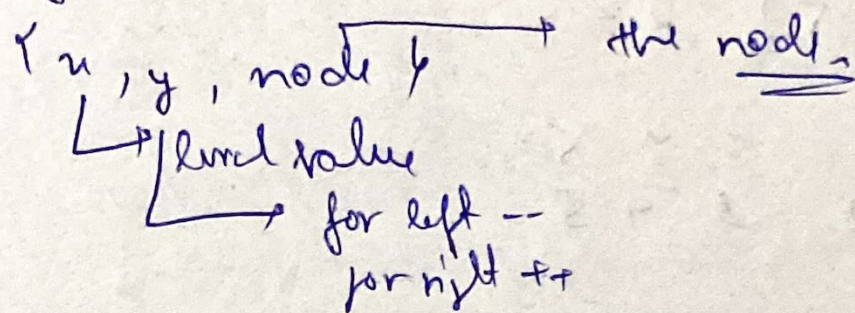 {x, y, node} → the node.
level value
for left --
for right ++